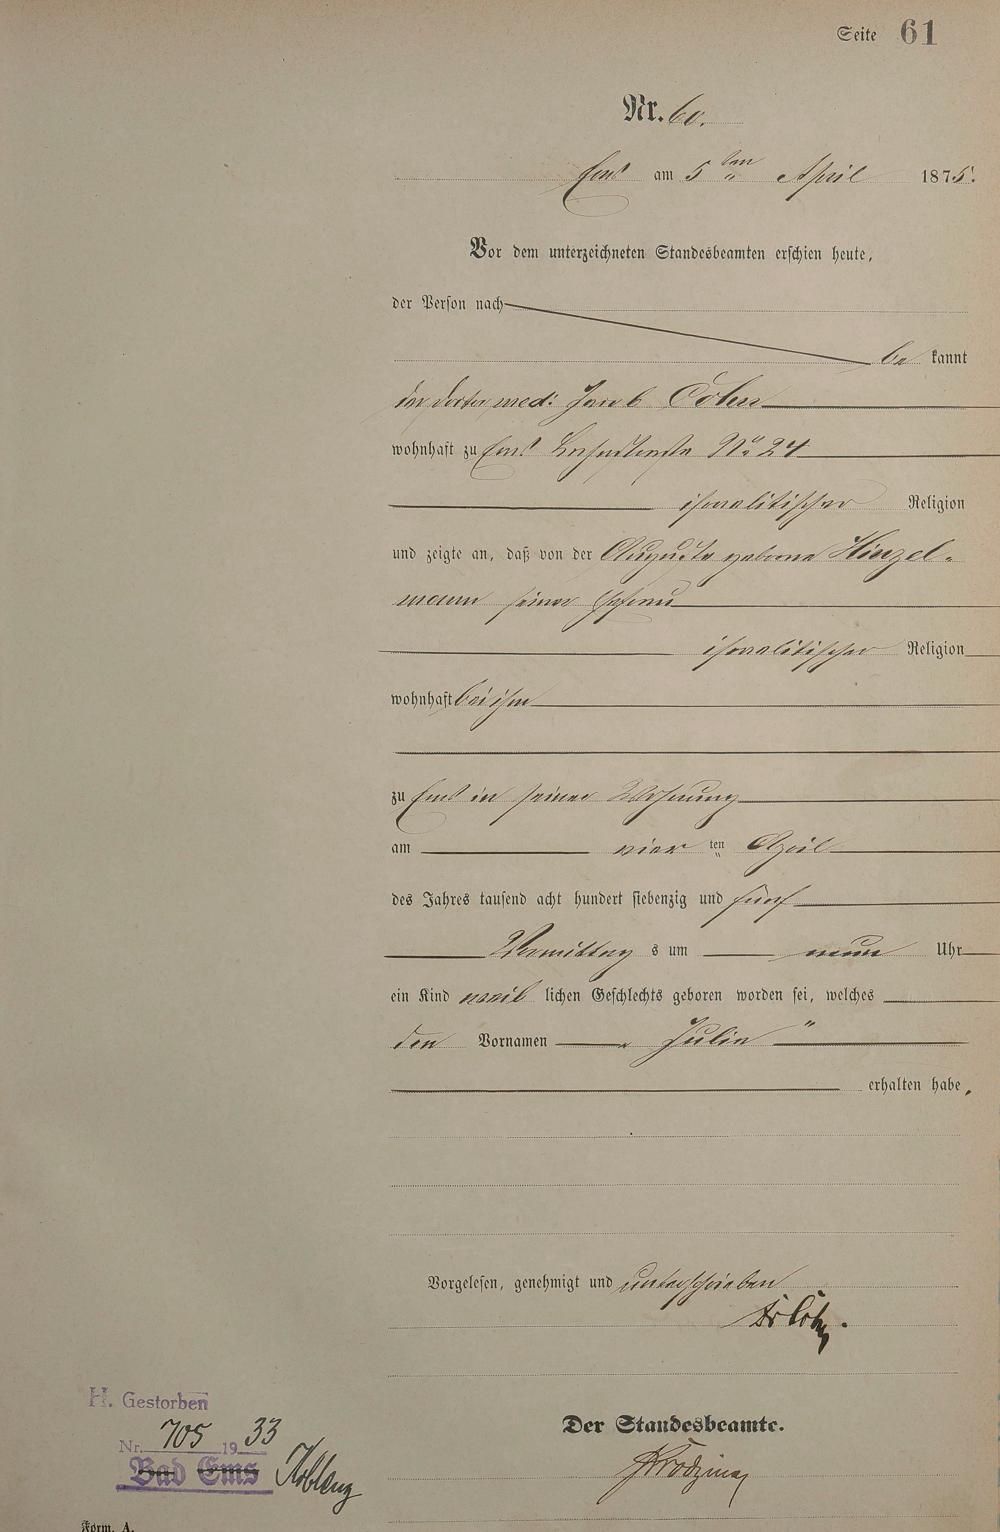 Seite 61
Nr. 60.
Ems am 5ten April 1875.
Vor dem unterzeichneten Standesbeamten erschien heute,
der Person nach
be kannt
der doctor med: Jacob Cohn
wohnhaft zu Ems No 24
israelitischer Religion
und zeigte an, daß von der Auguste geborene Hinzel-
mann seiner Ehefrau
israelitischer Religion
wohnhaft bei ihm
zu Ems in seiner Wohnung
am vier ten April
des Jahres tausend acht hundert siebenzig und fünf
Vormittag s um neun Uhr
ein Kind weib lichen Geschlechts geboren worden sei, welches
den Vornamen „Julie"
erhalten habe,
Vorgelesen, genehmigt und unterschrieben
Dr Cohn.
Der Standesbeamte.
H. Gestorben
Nr. 705 1933
Bad Ems Koblenz
Form. A.